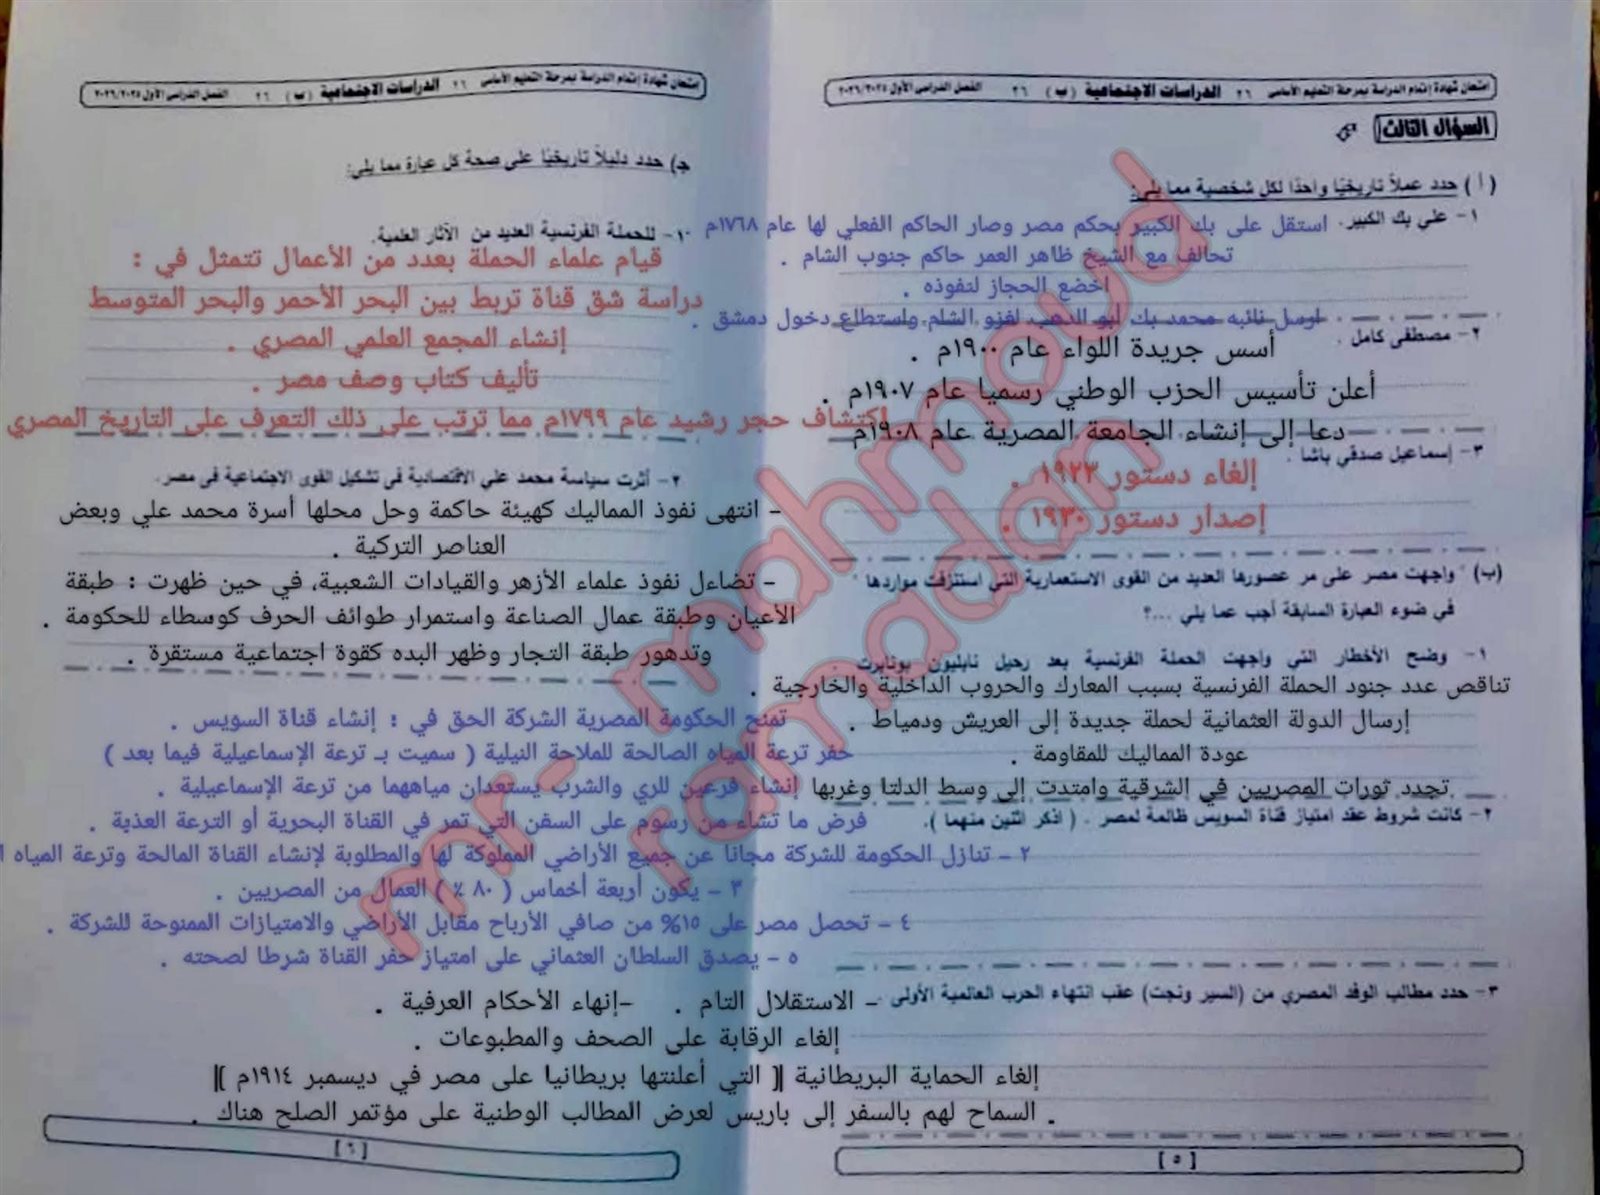 امتحان شهادة إتمام الدراسة بمرحلة التعليم الأساسى ٢٦ الدراسات الاجتماعية (ب) ٢٦ الفصل الدراسى الأول ٢٠٢٦/٢٠٢٥
السؤال الثالث
(أ) حدد عملاً تاريخيًا واحدًا لكل شخصية مما يلي:
١- علي بك الكبير. استقل على بك الكبير بحكم مصر وصار الحاكم الفعلي لها عام ١٧٦٨م
تحالف مع الشيخ ظاهر العمر حاكم جنوب الشام .
اخضع الحجاز لنفوذه .
ارسل نائبه محمد بك ابو الدهب لغزو الشام واستطاع دخول دمشق .
٢- مصطفى كامل .
أسس جريدة اللواء عام ١٩٠٠م .
أعلن تأسيس الحزب الوطني رسميا عام ١٩٠٧م .
دعا إلى إنشاء الجامعة المصرية عام ١٩٠٨م
٣- إسماعيل صدقي باشا .
إلغاء دستور ١٩٢٣ .
إصدار دستور ١٩٣٠ .
(ب) " واجهت مصر على مر عصورها العديد من القوى الاستعمارية التي استنزفت مواردها "
في ضوء العبارة السابقة أجب عما يلي ...؟
١- وضح الأخطار التي واجهت الحملة الفرنسية بعد رحيل نابليون بونابرت .
تناقص عدد جنود الحملة الفرنسية بسبب المعارك والحروب الداخلية والخارجية .
إرسال الدولة العثمانية لحملة جديدة إلى العريش ودمياط .
عودة المماليك للمقاومة .
تجدد ثورات المصريين في الشرقية وامتدت إلى وسط الدلتا وغربها
٢- كانت شروط عقد امتياز قناة السويس ظالمة لمصر . ( اذكر اثنين منهما ).
تمنح الحكومة المصرية الشركة الحق في : إنشاء قناة السويس .
حفر ترعة المياه الصالحة للملاحة النيلية ( سميت بـ ترعة الإسماعيلية فيما بعد )
إنشاء فرعين للري والشرب يستعدان مياههما من ترعة الإسماعيلية .
فرض ما تشاء من رسوم على السفن التي تمر في القناة البحرية أو الترعة العذبة .
٢ - تنازل الحكومة للشركة مجانا عن جميع الأراضي المملوكة لها والمطلوبة لإنشاء القناة المالحة وترعة المياه ا
٣ - يكون أربعة أخماس ( ٨٠ ٪ ) العمال من المصريين .
٤ - تحصل مصر على ١٥% من صافي الأرباح مقابل الأراضي والامتيازات الممنوحة للشركة .
٥ - يصدق السلطان العثماني على امتياز حفر القناة شرطا لصحته .
٣- حدد مطالب الوفد المصري من (السير ونجت) عقب انتهاء الحرب العالمية الأولى .
- الاستقلال التام . -إنهاء الأحكام العرفية .
إلغاء الرقابة على الصحف والمطبوعات .
إلغاء الحماية البريطانية [( التي أعلنتها بريطانيا على مصر في ديسمبر ١٩١٤م )]
. السماح لهم بالسفر إلى باريس لعرض المطالب الوطنية على مؤتمر الصلح هناك .
[ ٥ ]
امتحان شهادة إتمام الدراسة بمرحلة التعليم الأساسى ٢٦ الدراسات الاجتماعية (ب) ٢٦ الفصل الدراسى الأول ٢٠٢٦/٢٠٢٥
ج) حدد دليلاً تاريخيًا على صحة كل عبارة مما يلي:
١- للحملة الفرنسية العديد من الآثار العلمية.
قيام علماء الحملة بعدد من الأعمال تتمثل في :
دراسة شق قناة تربط بين البحر الأحمر والبحر المتوسط
إنشاء المجمع العلمي المصري .
تأليف كتاب وصف مصر .
اكتشاف حجر رشيد عام ١٧٩٩م مما ترتب على ذلك التعرف على التاريخ المصري
٢- أثرت سياسة محمد علي الاقتصادية فى تشكيل القوى الاجتماعية فى مصر.
- انتهى نفوذ المماليك كهيئة حاكمة وحل محلها أسرة محمد علي وبعض
العناصر التركية .
- تضاءل نفوذ علماء الأزهر والقيادات الشعبية، في حين ظهرت : طبقة
الأعيان وطبقة عمال الصناعة واستمرار طوائف الحرف كوسطاء للحكومة .
وتدهور طبقة التجار وظهر البده كقوة اجتماعية مستقرة .
[ ٦ ]
mr- mahmoud
ramadan